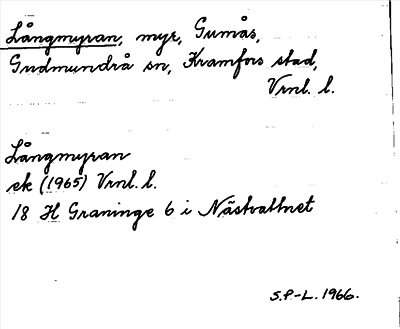 Långmyran, myr, Gumås,
Gudmundrå sn, Kramfors stad,
Vrnl. l.
Långmyran
ek (1965) Vrnl. l.
18 H Graninge 6 i Nästvattnet
S.P-L. 1966.